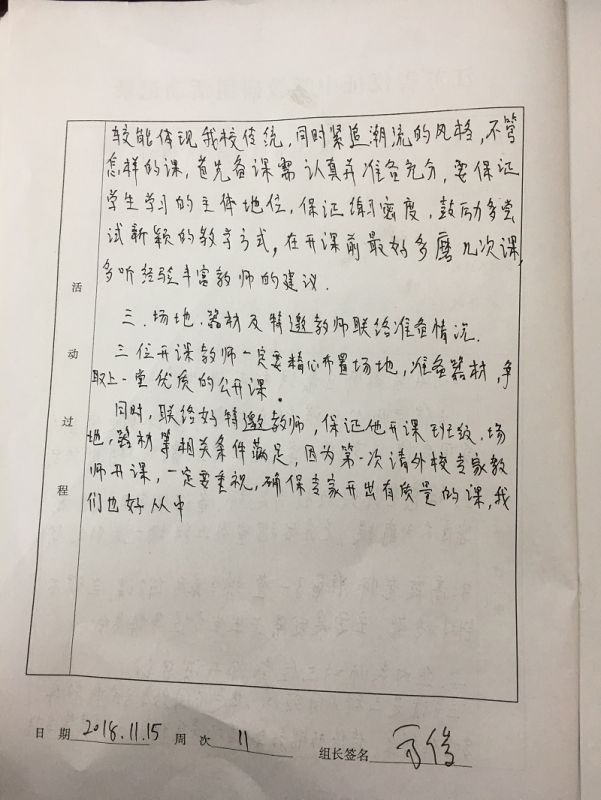 较能体现我校传统，同时紧追潮流的风格，不管
怎样的课，首先备课需认真并准备充分，要保证
学生学习的主体地位，保证练习密度，鼓励多尝
试新颖的教学方式，在开课前最好多磨几次课，
多听经验丰富教师的建议．
三．场地．器材及特邀教师联络准备情况．
三位开课教师一定要精心布置场地，准备器材，争
取上一堂优质的公开课．
同时，联络好特邀教师，保证他开课班级．场
地，器材等相关条件满足，因为第一次请外校专家教
师开课，一定要重视，确保专家开出有质量的课，我
们也好从中
活
动
过
程
日 期 2018.11.15 周 次 11 组长签名